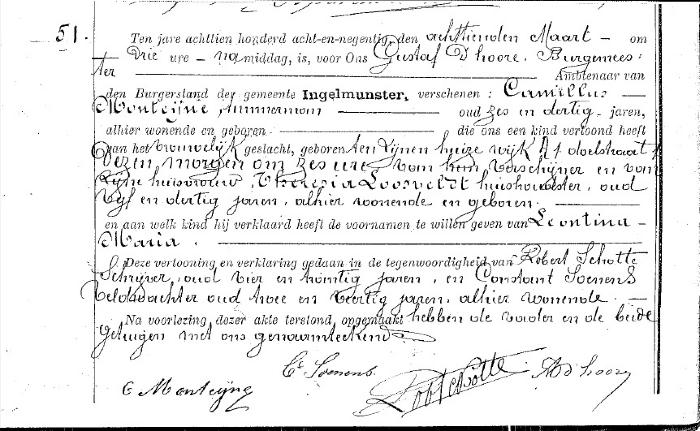 51.
Ten jare achttien honderd acht-en-negentig, den achttienden Maart - om
Drie ure - namiddag, is, voor Ons Gustaf D'hoore. Burgemees:
ter Ambtenaar van
den Burgerstand der gemeente Ingelmunster, verschenen: Camillus
Monteijne, timmerman oud zes en dertig - jaren,
alhier wonende en geboren die ons een kind vertoond heeft
van het vrouwelijk geslacht, geboren ten zijnen huize wijk A
dezen morgen om zes ure, van hem verschijner en van
zijne huisvrouw, Theresia Loosveldt huishoudster, oud
vijf en dertig jaren, alhier wonende en geboren.
en aan welk kind hij verklaard heeft de voornamen te willen geven van Leontina
Maria.
Deze vertooning en verklaring gedaan in de tegenwoordigheid van Robert Schotte
Schrijver, oud vier en twintig jaren, en Constant Soenens
veldwachter oud twee en veertig jaren, alhier wonende.
Na voorlezing dezer akte terstond opgemaakt hebben de vader en de beide
getuigen met ons genaamteekend
Ct Soenens
C Monteijne Rob Schotte D'hoore